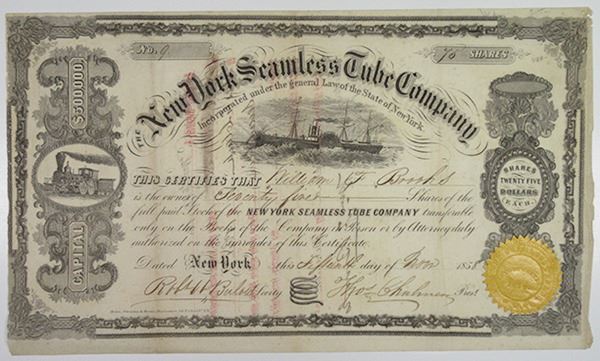 No. 9
75 SHARES
THE New York Seamless Tube Company
Incorporated under the General Law of the State of New York.
CAPITAL $300,000.
SHARES
TWENTY FIVE
DOLLARS
EACH.
THIS CERTIFIES THAT William F. Brooks
is the owner of Seventy five Shares of the
full paid Stock of the NEW YORK SEAMLESS TUBE COMPANY transferable
only on the Books of the Company in Person or by Attorney duly
authorized on the surrender of this Certificate.
Dated New York this Fifteenth day of Nov 185
Secretary Thos Presdt